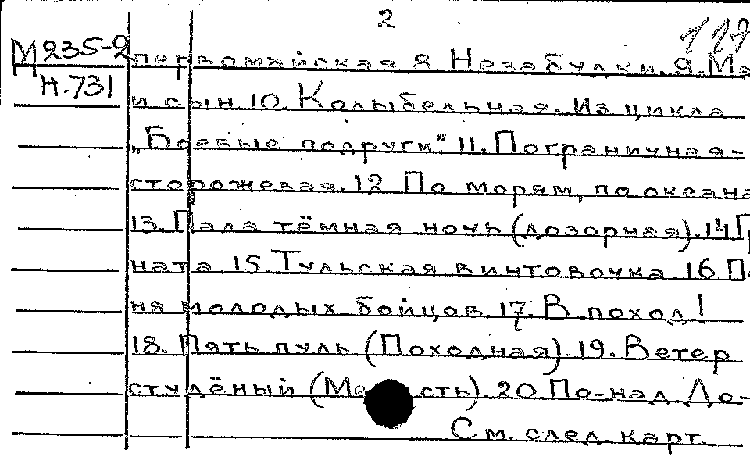 2
М235-2 первомайская 8 Незабудки. 9. Ма
Н.731
и сын 10. Колыбельная. Из цикла
„Боевые подруги" 11. Пограничная-
сторожевая. 12 По морям, по океана
13. Пала тёмная ночь (дозорная). 14 Гр
ната 15. Тульская винтовочка 16 Пе
ня молодых бойцов 17. В поход!
18. Пять пуль (Походная) 19. Ветер
студёный 20 По-над До-
См. след карт.